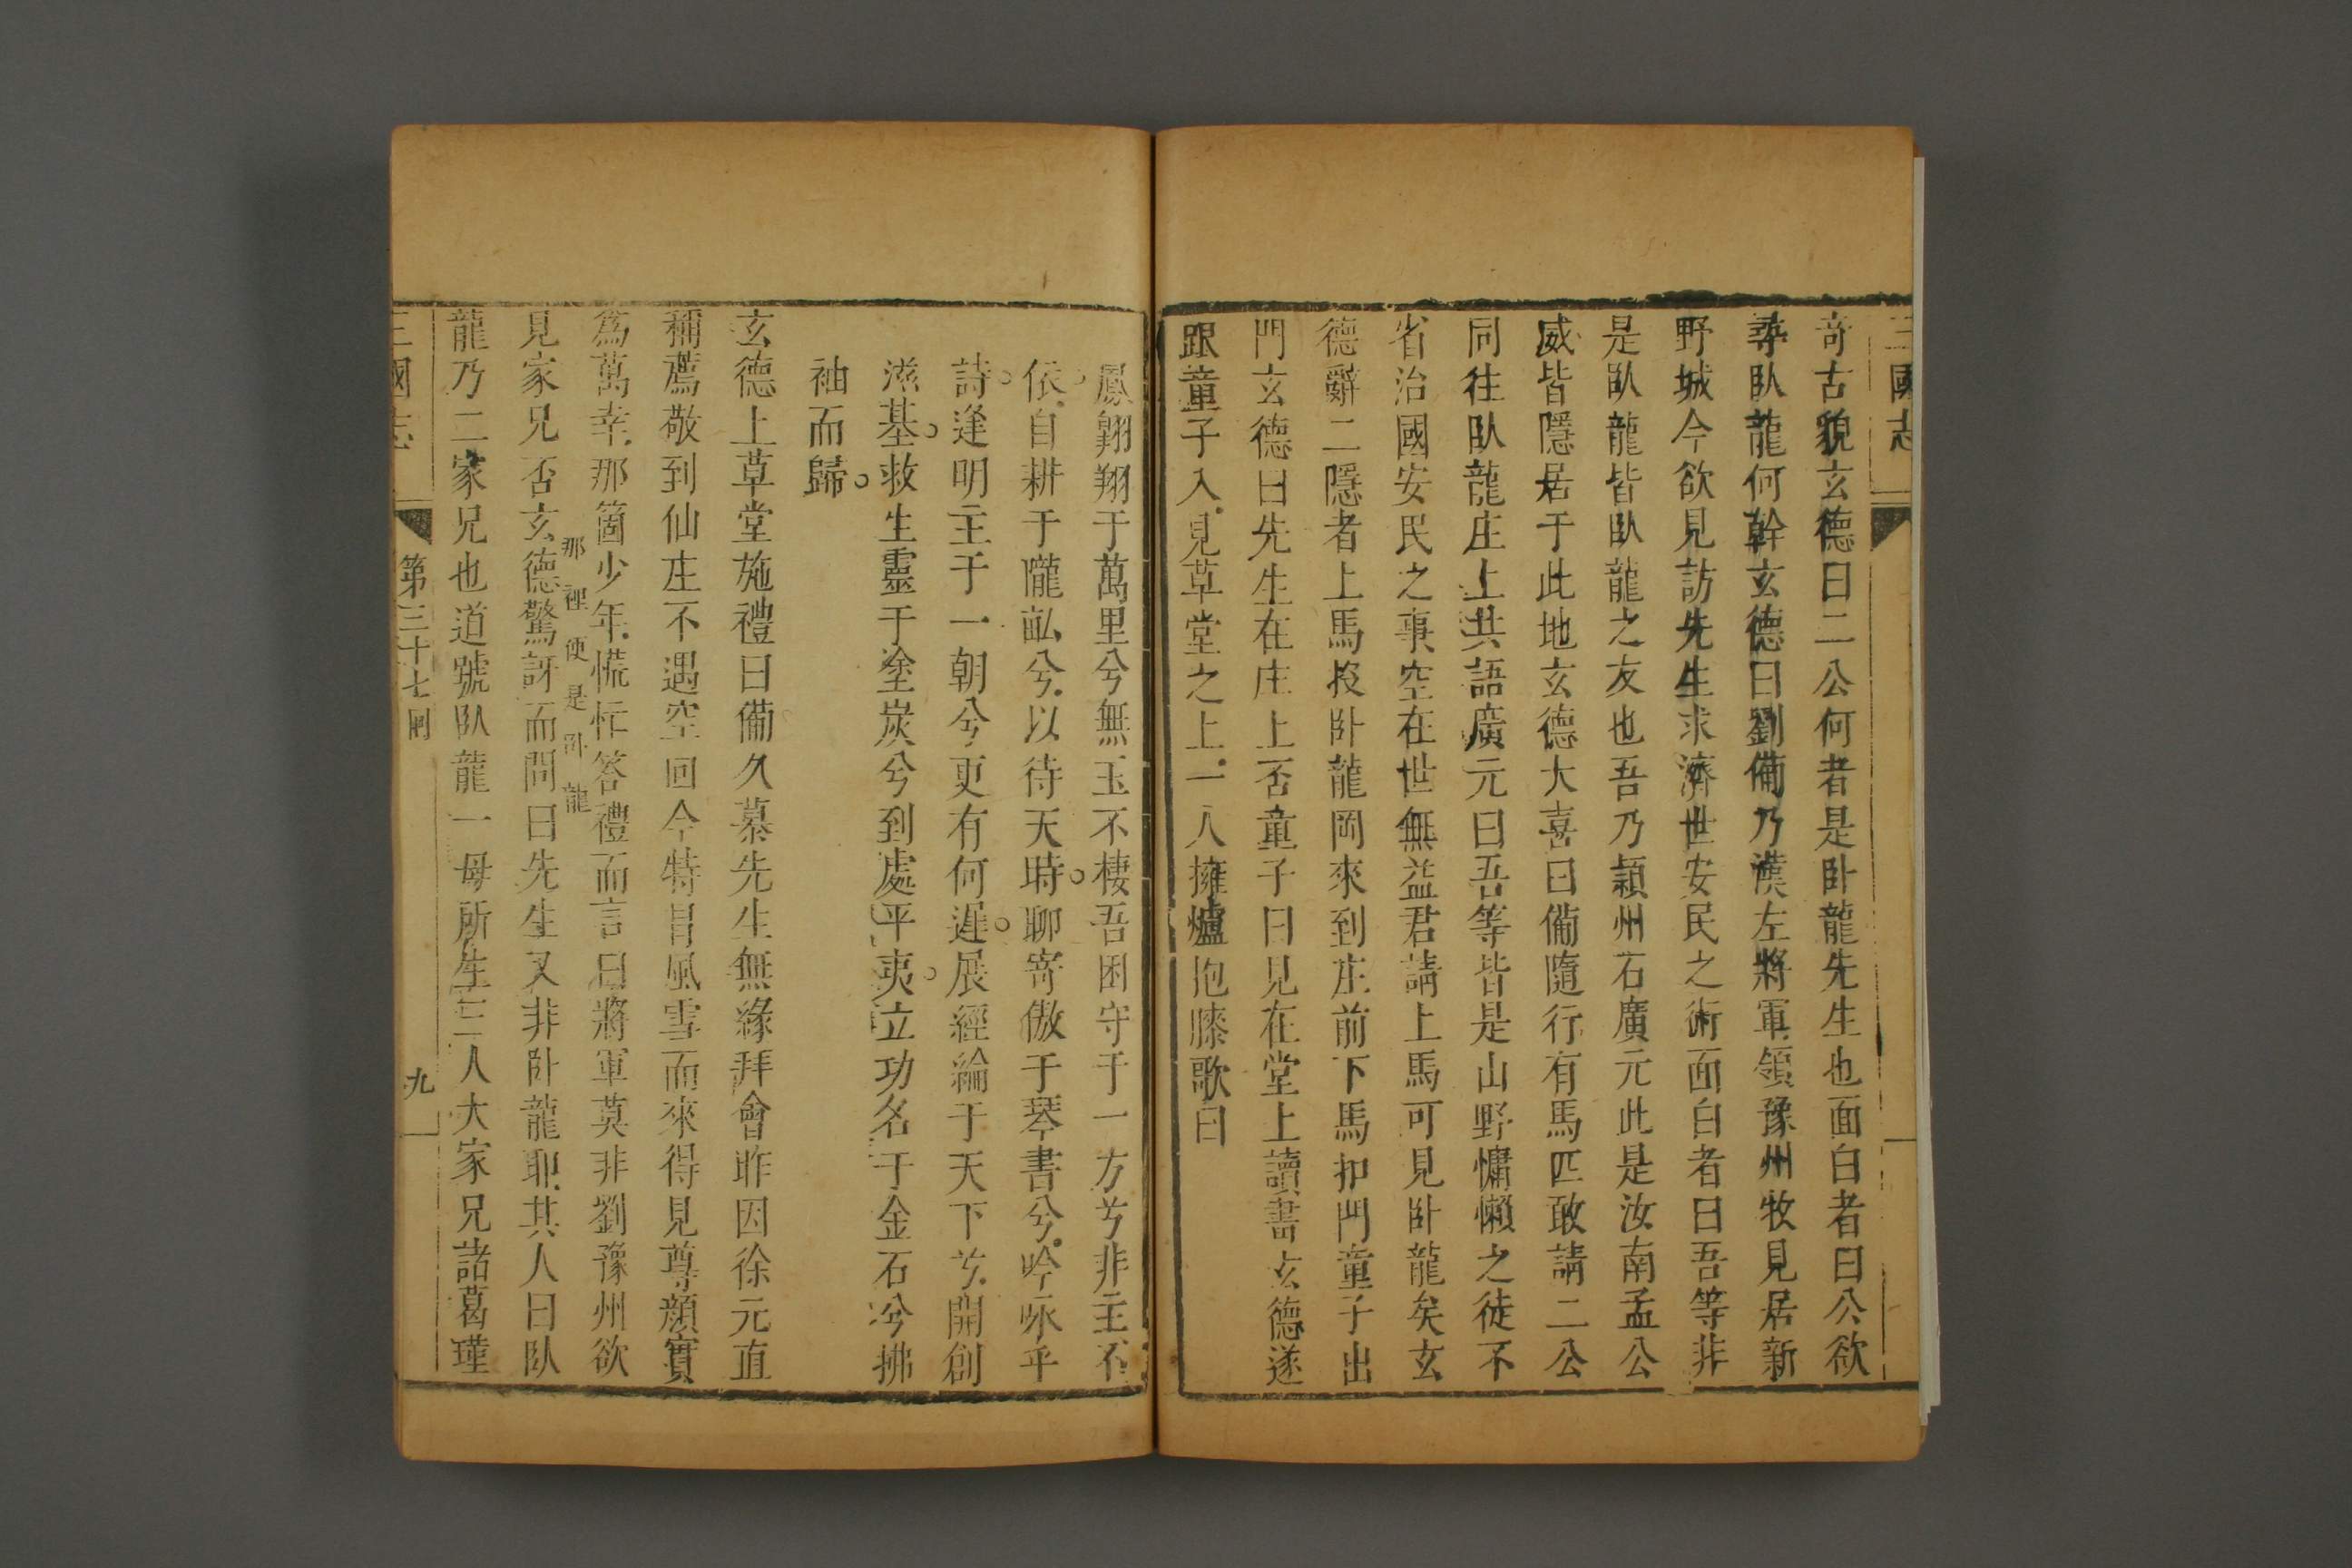 三國志
奇古貌玄德曰二公何者是卧龍先生也面白者曰公欲
尋臥龍何幹玄德曰劉備乃漢左將軍領豫州牧見居新
野城今欲見訪先生求濟世安民之術面白者曰吾等非
是臥龍皆臥龍之友也吾乃潁州石廣元此是汝南孟公
威皆隱居于此地玄德大喜曰備隨行有馬匹敢請二公
同往臥龍庄上共語廣元曰吾等皆是山野慵懶之徒不
省治國安民之事空在世無益君請上馬可見卧龍矣玄
德辭二隱者上馬投卧龍岡來到庄前下馬扣門童子出
門玄德曰先生在庄上否童子曰見在堂上讀書玄德遂
跟童子入見草堂之上一人擁爐抱膝歌曰
鳳翱翔于萬里兮無玉不棲吾困守于一方兮非主不
依自耕于隴畝兮以待天時聊寄傲于琴書兮吟咏乎
詩逢明主于一朝兮更有何遲展經綸于天下兮開創
滋基救生靈于塗炭兮到處平夷立功名于金石兮拂
袖而歸
玄德上草堂施禮曰備久慕先生無緣拜會昨因徐元直
稱薦敬到仙庄不遇空回今特冒風雪而來得見尊顔實
為萬幸那箇少年慌忙答禮而言曰將軍莫非劉豫州欲
見家兄否玄德驚訝而問曰先生又非卧龍耶其人曰臥
那裡便是卧龍
龍乃二家兄也道號臥龍一母所生三人大家兄諸葛瑾
三國志 第三十七囘 九